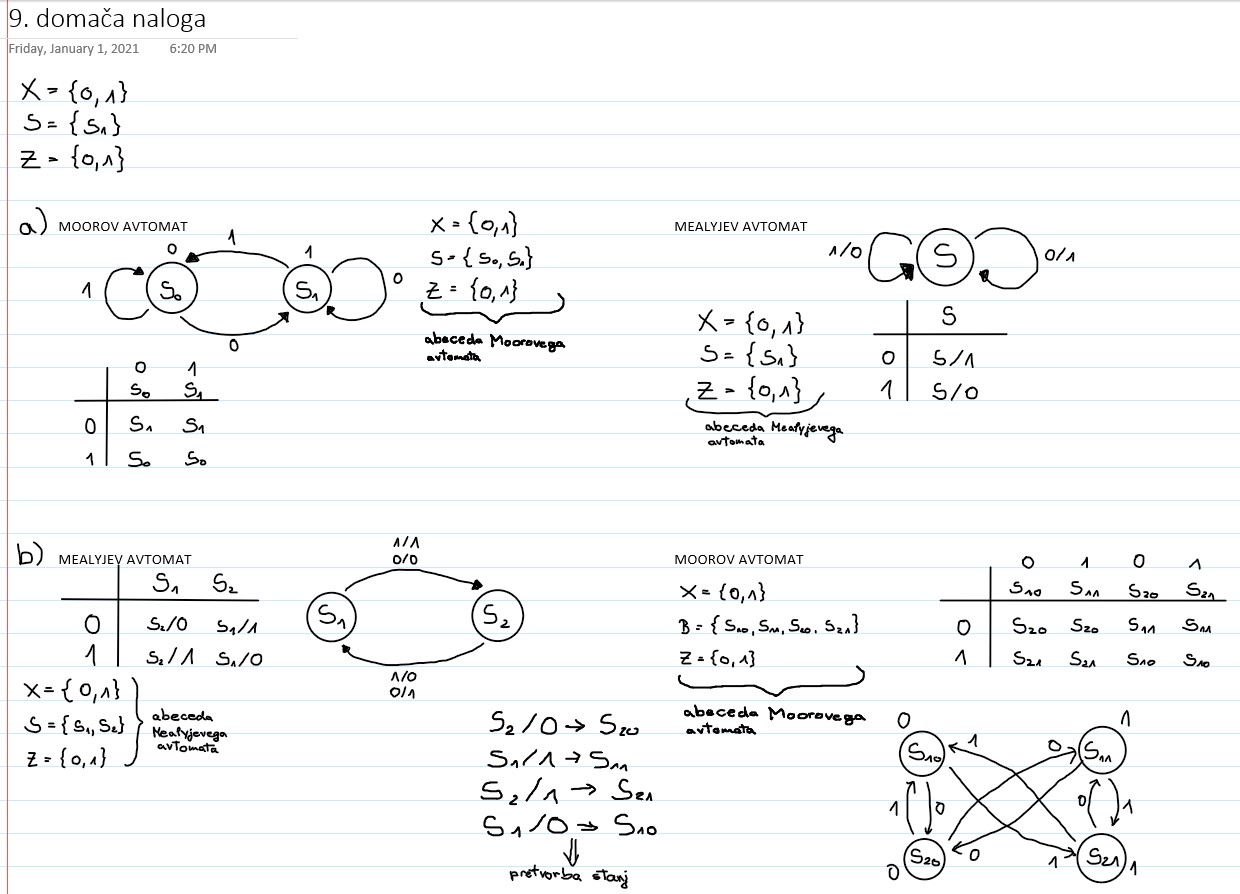 9. domača naloga
Friday, January 1, 2021 6:20 PM
X = {0,1}
S = {S₁}
Z = {0,1}
a) MOOROV AVTOMAT
0 1 1
1 S₀ S₁ 0
0
0 1
S₀ S₁
0 S₁ S₁
1 S₀ S₀
X = {0,1}
S = {S₀, S₁}
Z = {0,1}
abeceda Moorovega
avtomata
MEALYJEV AVTOMAT
1/0 S 0/1
X = {0,1}
S = {S₁}
Z = {0,1}
abeceda Mealyjevega
avtomata
S
0 S/1
1 S/0
b) MEALYJEV AVTOMAT
S₁ S₂
0 S₂/0 S₁/1
1 S₂/1 S₁/0
X = {0,1}
S = {S₁, S₂}
Z = {0,1}
abeceda
Mealyjevega
avtomata
1/1
0/0
S₁ S₂
1/0
0/1
S₂/0 → S₂₀
S₁/1 → S₁₁
S₂/1 → S₂₁
S₁/0 → S₁₀
⇓
pretvorba stanj
MOOROV AVTOMAT
X = {0,1}
B = {S₁₀, S₁₁, S₂₀, S₂₁}
Z = {0,1}
abeceda Moorovega
avtomata
0 1 0 1
S₁₀ S₁₁ S₂₀ S₂₁
0 S₂₀ S₂₀ S₁₁ S₁₁
1 S₂₁ S₂₁ S₁₀ S₁₀
0 1
S₁₀ 1 0 S₁₁
1 0 0 1
S₂₀ 0 1 S₂₁
0 1